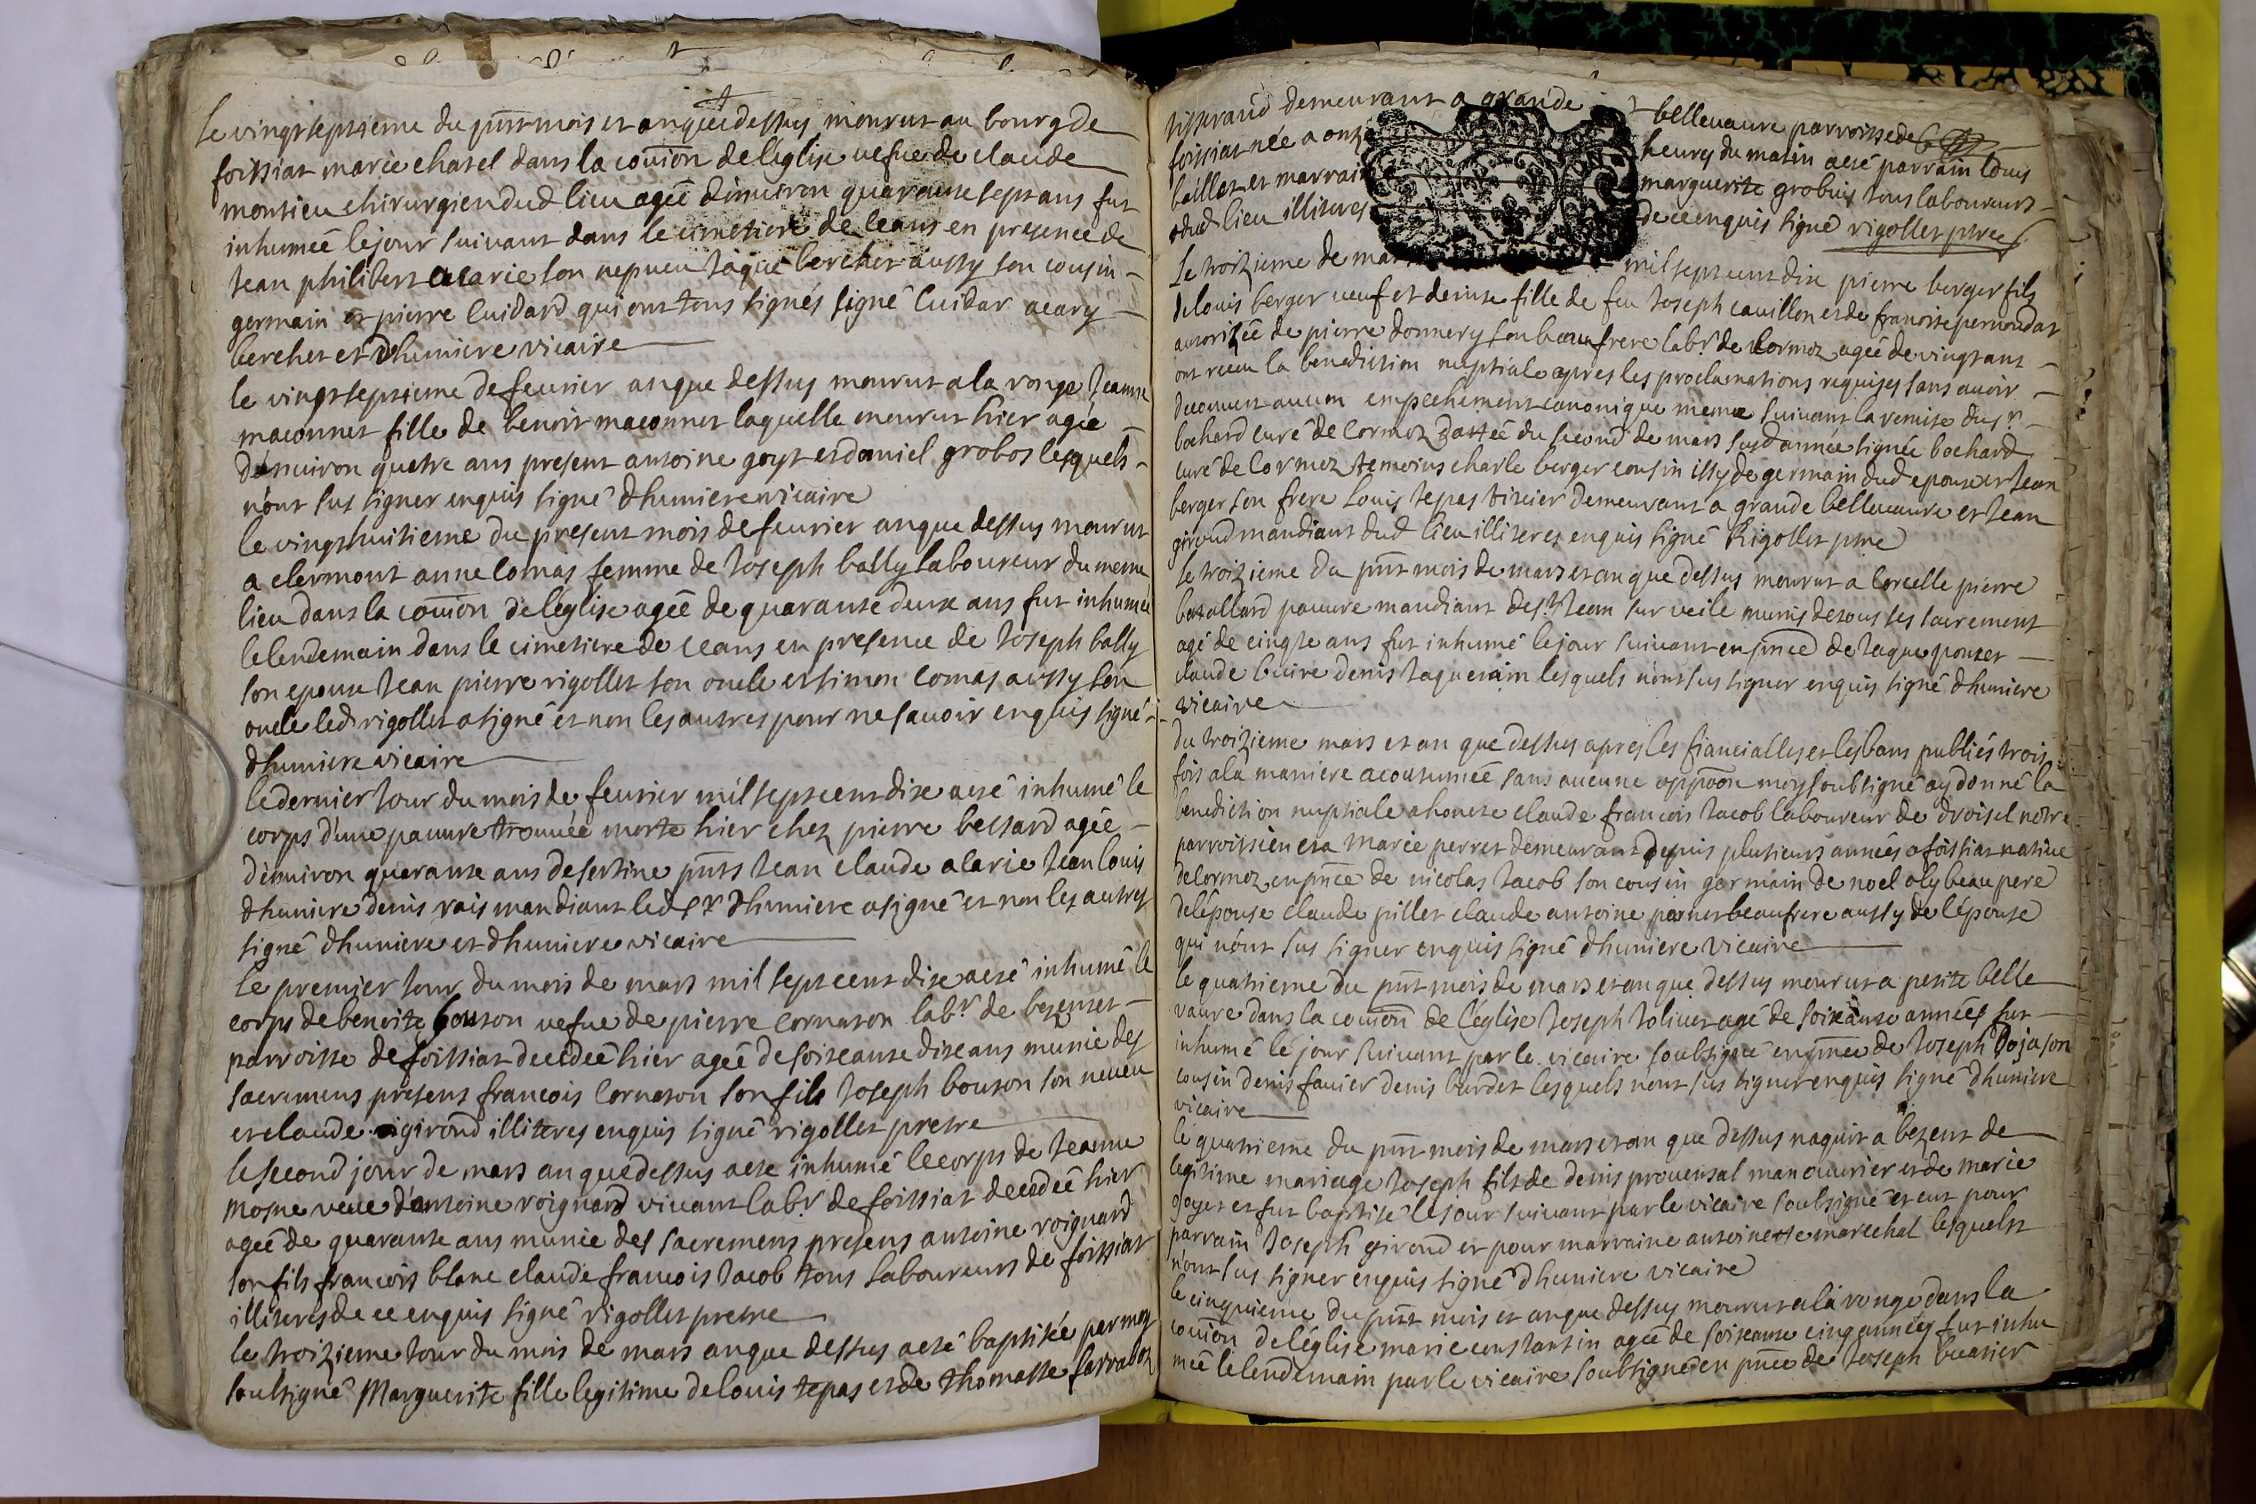 le vingt septieme du pnt mois et an que dessus mourut au bourg de
foissiat marie chatel dans la coūion de l'eglise vefue de claude
montieu chirurgien dud lieu agée d'enuiron quarante sept ans fut
inhumée le jour suiuant dans le cimetiere de ceans en presence de
Jean philibert acarie son nepueu Jaque bercher aussy son cousin
germain et pierre Cuidard qui ont tous signés signé Cuidar acary
bercher et Dhumiere vicaire
le vingt septieme de feurier an que dessus mourut a la ronge Jeanne
maconnet fille de benoit maconnet laquelle mourut hier agée
d'enuiron quatre ans present antoine goyt et daniel grobos lesquels
n'ont sus signer enquis signé dhumiere vicaire
le vingt huitieme du present mois de feurier an que dessus mourut
a clermont anne Comas femme de Joseph bally laboureur du meme
lieu dans la coūion de l'eglise agée de quarante deux ans fut inhumée
le lendemain dans le cimetiere de ceans en presence de Joseph bally
son epoux Jean pierre rigollet son oncle et simon Comas aussy son
oncle led rigollet a signé et non les autres pour ne sauoir enquis signé
dhumiere vicaire
le dernier Jour du mois de feurier mil sept cent dix a eté inhumé le
corps d'une pauure trouuée morte hier chez pierre bessard agée
d'enuiron quarante ans de sertine pnts Jean claude alarie Jean louis
dhumiere denis vais mandiant led sr dhumiere a signé et non les autres
signé dhumiere et dhumiere vicaire
le premier Jour du mois de mars mil sept cent dix a eté inhumé le
corps de benoite bouton vefue de pierre Cornaton labr de bezentet
parroisse de foissiat decedée hier agée de soixante dix ans munie des
sacremens presens francois Cornaton son fils Joseph bouton son neueu
et claude girond illiteres enquis signé rigollet pretre
le second jour de mars an que dessus a eté inhumé le corps de Jeanne
mosne veue d'antoine roignard viuant labr de foissiat decedée hier
agée de quarante ans munie des sacremens presens antoine roignard
son fils francois blanc claude francois Jacob tous laboureurs de foissiat
illiteres de ce enquis signé rigollet pretre
le troizieme Jour du mois de mars an que dessus a eté baptisée par moy
soubsigné Marguerite fille legitime de louis tepas et de thomasse farrason
tisserand demeurant a grande bellevaure parroisse de
foissiat née a onze heures du matin a eté parrain louis
baillet et marraine marguerite grobuis tous laboureurs
dud lieu illiteres de ce enquis signé rigollet ptre
Le troizieme de mars mil sept cent dix pierre berger fils
de louis berger veuf et denise fille de feu Joseph cauillon et de francoise pernoudat
autorizée de pierre donnery son beaufrere labr de Cormoz agée de vingt ans
ont receu la benediction nuptiale apres les proclamations requises sans auoir
decouuert aucun empechement canonique meme suiuant la remise du sr
bochard curé de Cormoz dattée du second de mars susd année signée bochard
curé de Cormoz temoins charle berger cousin issy de germain dud epoux et Jean
berger son frere Louis tepas tixier demeurant a grande bellevaure et Jean
giroud mandiant dud lieu illiteres enquis signé Rigollet ptre
le troizieme du pnt mois de mars et an que dessus mourut a Corcelle pierre
batallard pauure mandiant de st Jean sur veile munis de tous ses sacrement
agé de cinqte ans fut inhumé le jour suiuant en pnce de Jaque ponset
claude buire denis Jaquemin lesquels n'ont sus signer enquis signé dhumiere
vicaire
du troizieme mars et an que dessus apres les fiancialles et les bans publiés trois
fois a la maniere acoutumée sans aucune oppoon moy soubsigné ay donné la
benediction nuptiale a honete claude francois Jacob laboureur de droisel notre
parroissien et a Marie perret demeurant depuis plusieurs années a foissiat natiue
de Cormoz en pnce de nicolas Jacob son cousin germain de noel oly beau pere
de l'épouse claude pillet claude antoine parnet beaufrere aussy de l'épouse
qui n'ont sus signer enquis signé dhumiere vicaire
le quatrieme du pnt mois de mars et an que dessus mourut a petite belle
vaure dans la coūion de l'église Joseph Joliuet agé de soixante années fut
inhumé le jour suiuant par le vicaire soubsigné en pnce de Joseph Doja son
cousin denis fauier denis burdet lesquels n'ont sus signer enquis signé dhumiere
vicaire
le quatrieme du pnt mois de mars et an que dessus naquit a bezent de
legitime mariage Joseph fils de denis prouensal manouurier et de marie
goyet et fut baptisé le jour suiuant par le vicaire soubsigné et eut pour
parrain Joseph girond et pour marraine antoinette marechal lesquels
n'ont sus signer enquis signé dhumiere vicaire
le cinquieme du pnt mois et an que dessus mourut a la ronge dans la
coūion de l'église marie constantin agée de soixante cinq années fut inhu
mée le lendemain par le vicaire soubsigné en pnce de Joseph buatier